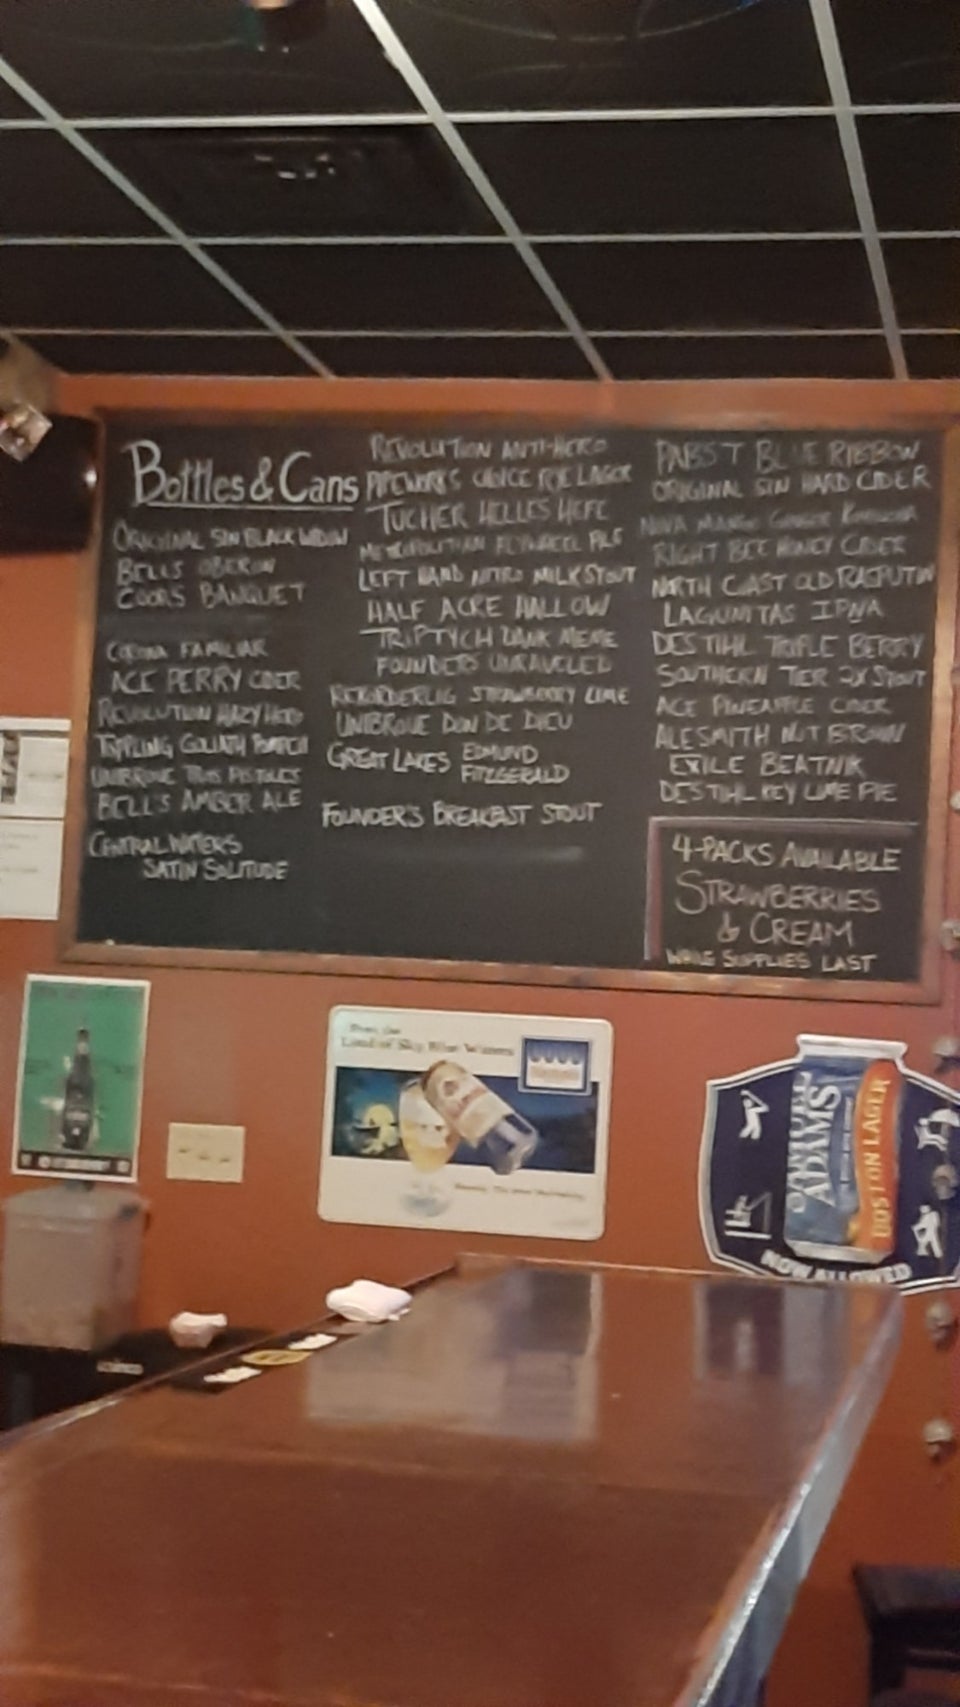 Bottles & Cans
ORIGINAL SIN BLACK WIDOW
BELLS OBERON
COORS BANQUET
CORONA FAMILIAR
ACE PERRY CIDER
REVOLUTION HAZY HERO
TOPPLING GOLIATH
UNIBROUE TROIS PISTOLES
BELL'S AMBER ALE
CENTRAL WATERS
SATIN SOLITUDE
REVOLUTION ANTI-HERO
PIPEWORKS CHOICE RYE LAGER
TUCHER HELLES HEFE
METROPOLITAN FLYWHEEL PILS
LEFT HAND NITRO MILK STOUT
HALF ACRE HALLOW
TRIPTYCH DANK MEME
FOUNDERS UNRAVELED
REKORDERLIG STRAWBERRY LIME
UNIBROUE DON DE DIEU
GREAT LAKES EDMUND
FITZGERALD
FOUNDER'S BREAKFAST STOUT
PABST BLUE RIBBON
ORIGINAL SIN HARD CIDER
MANGO GINGER KOMBUCHA
RIGHT BEE HONEY CIDER
NORTH COAST OLD RASPUTIN
LAGUNITAS IPNA
DESTIHL TRIPLE BERRY
SOUTHERN TIER 2X STOUT
ACE PINEAPPLE CIDER
ALESMITH NUT BROWN
EXILE BEATNIK
DESTIHL KEY LIME PIE
4-PACKS AVAILABLE
STRAWBERRIES
& CREAM
WHILE SUPPLIES LAST
From the
Land of Sky Blue Waters
SAMUEL
ADAMS
BOSTON LAGER
NOW ALLOWED